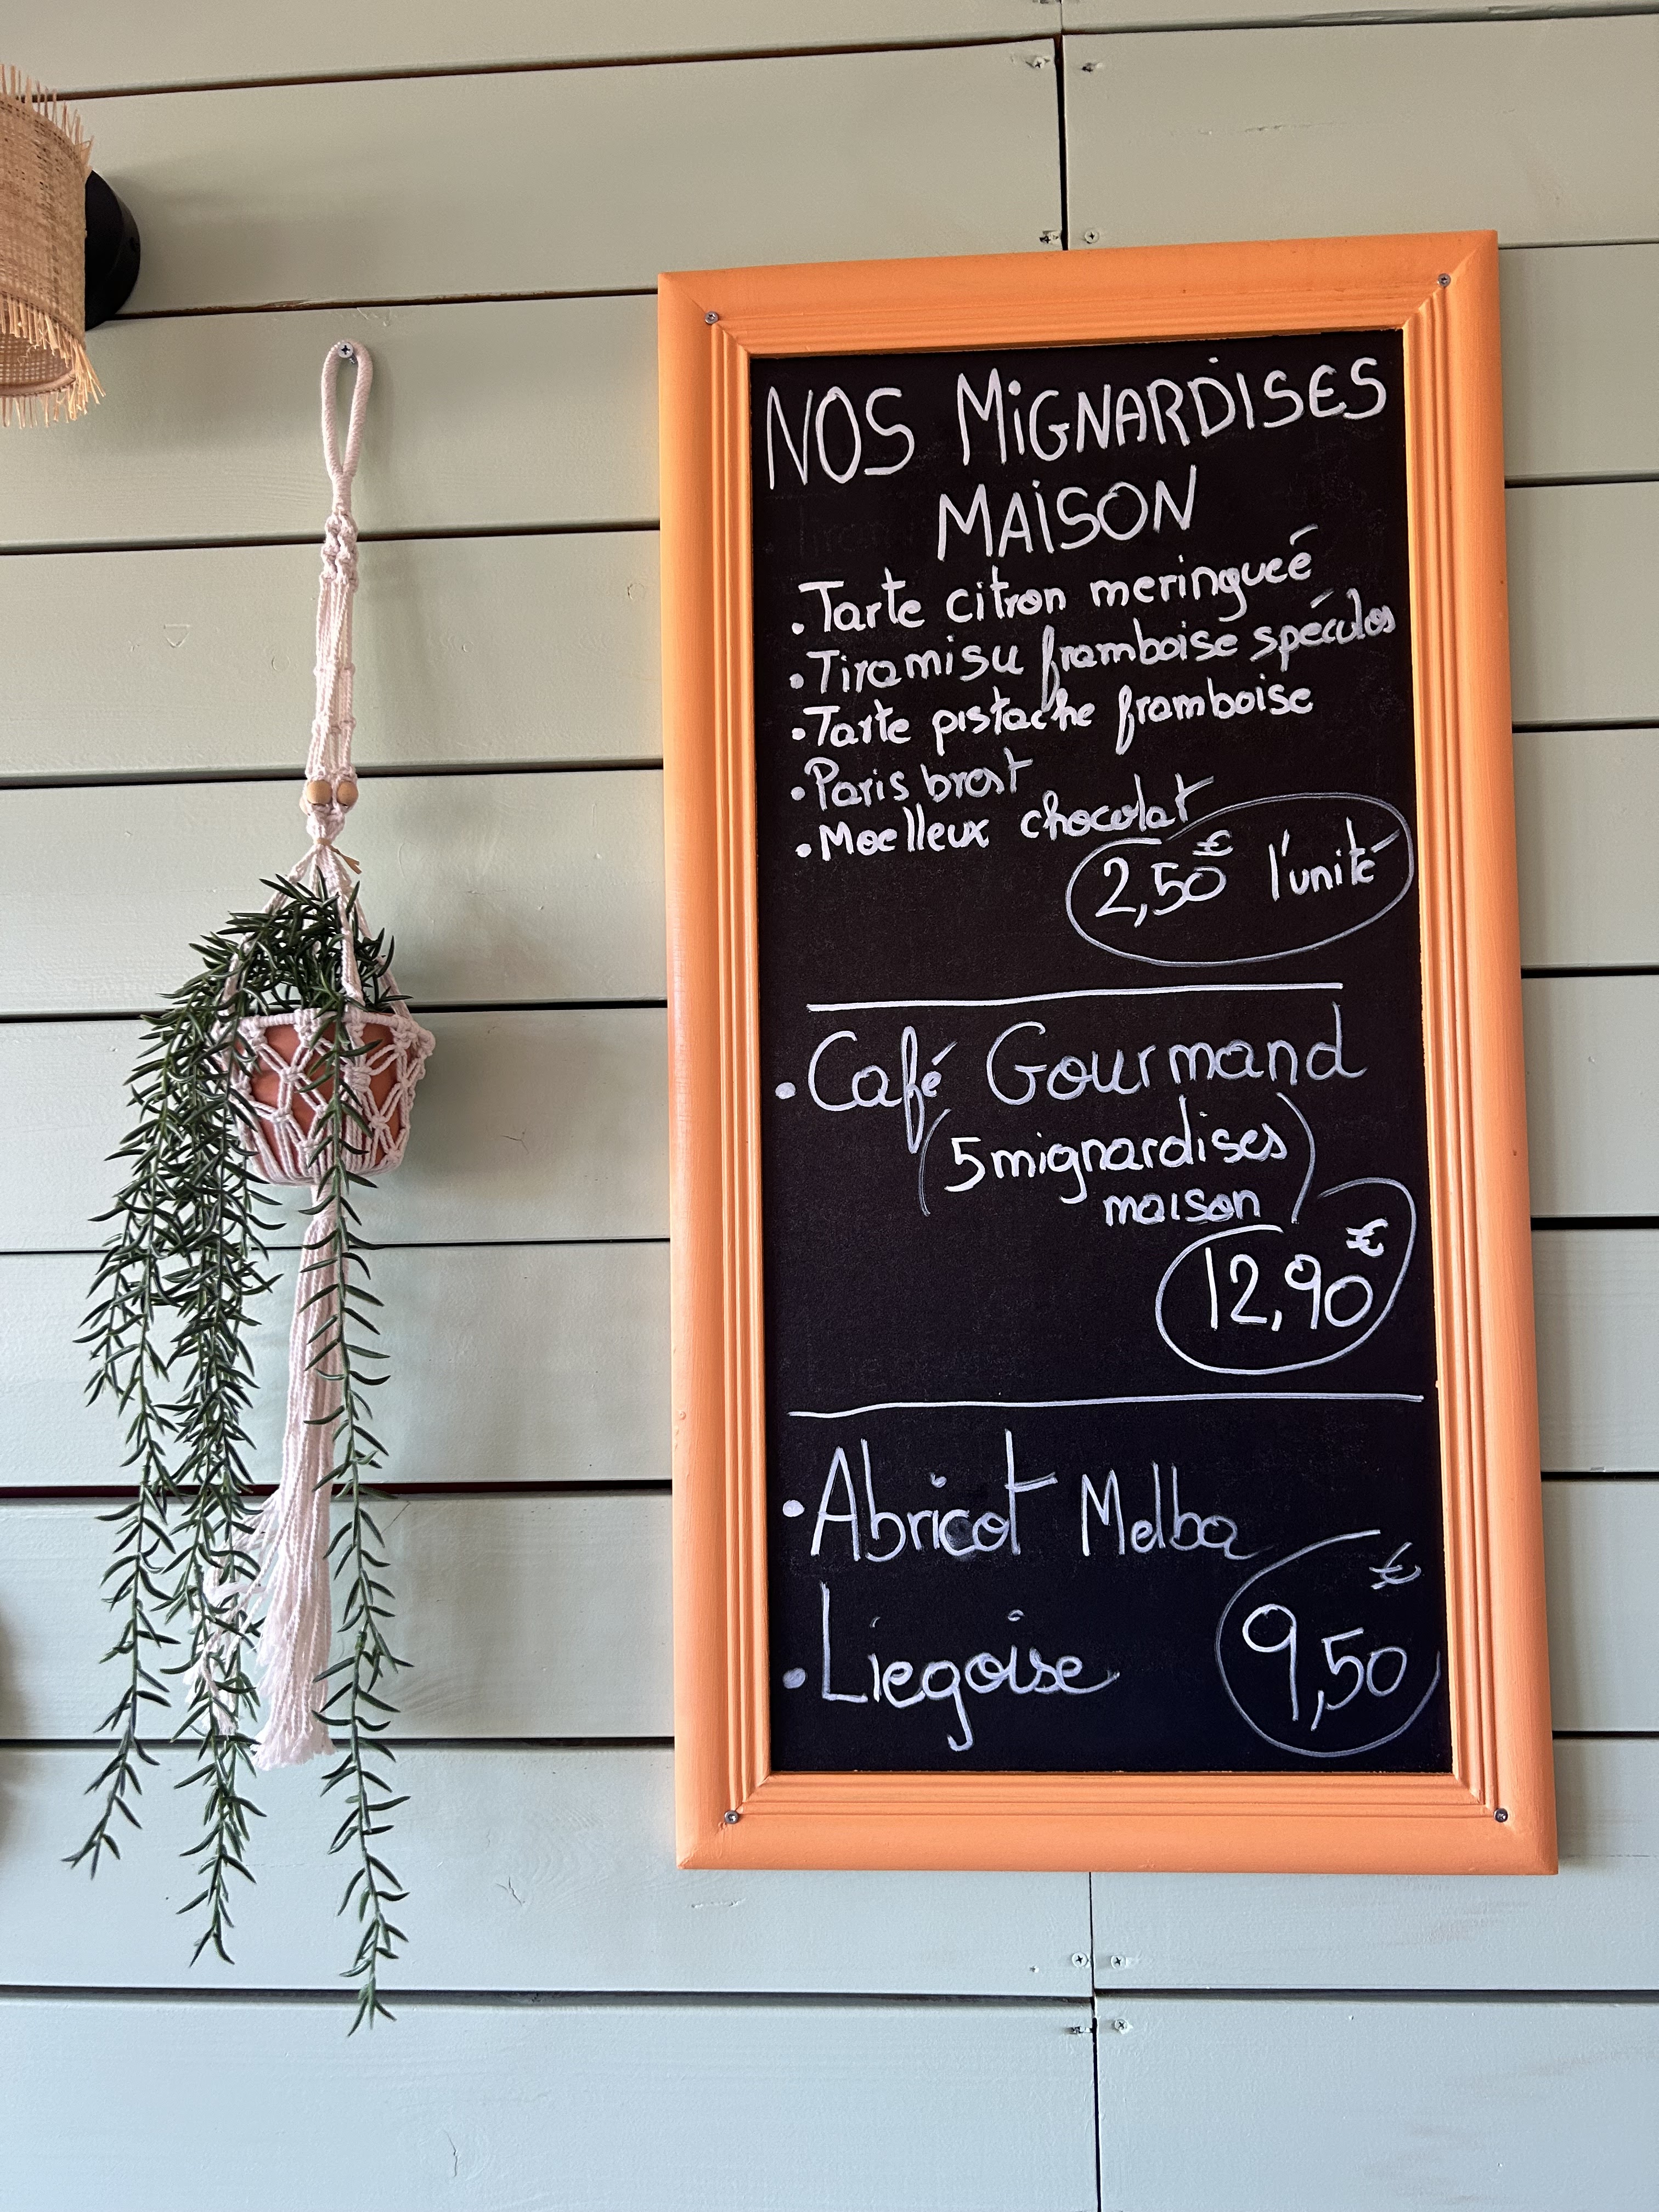 NOS MiGNARDiSES
MAiSON
. Tarte citron meringueé
. Tiramisu framboise spéculos
. Tarte pistache framboise
. Paris brest
. Moelleux chocolat
2,50€ l'unité
. Café Gourmand
(5 mignardises
maison)
12,90€
. Abricot Melba
. Liegoise
9,50€